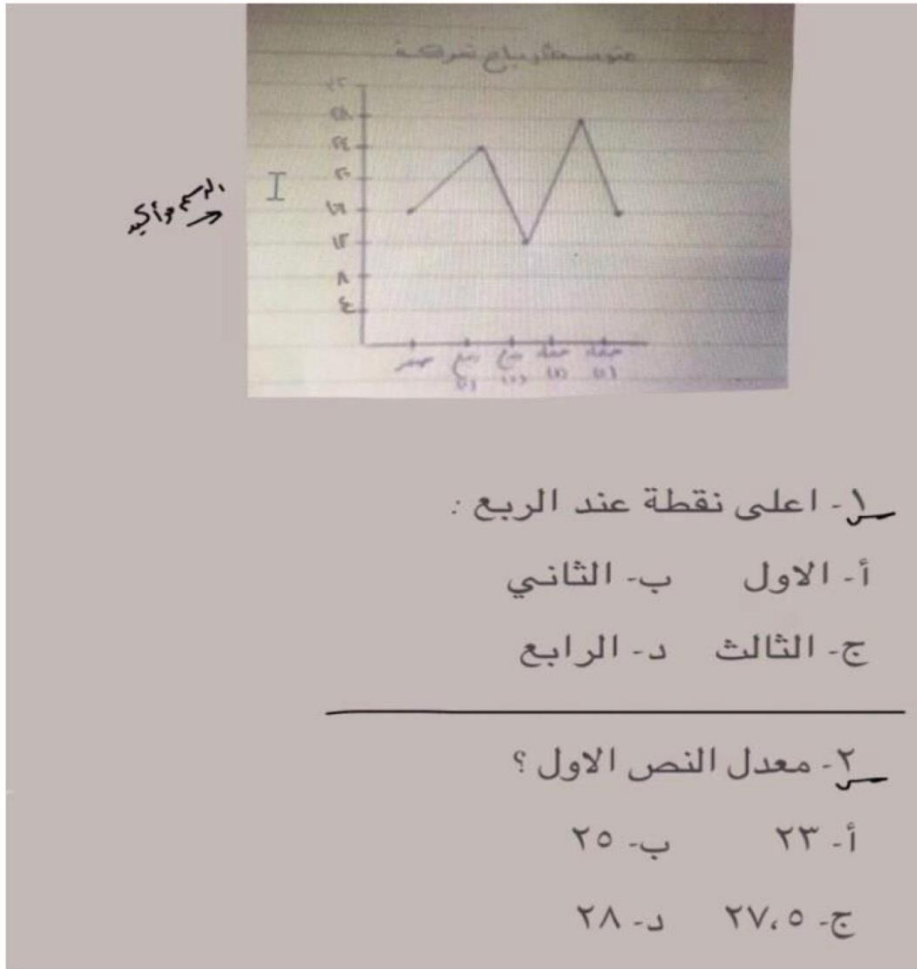 متوسط أرباح شركة
٣٢
٢٨
٢٤
٢٠
١٦
١٢
٨
٤
صفر ربيع ربيع جماد جماد
(١) (٢) (١) (٢)
الرسم مو أكيد
س١- اعلى نقطة عند الربع :
أ- الاول ب- الثاني
ج- الثالث د- الرابع
س٢- معدل النص الاول ؟
أ- ٢٣ ب- ٢٥
ج- ٢٧،٥ د- ٢٨